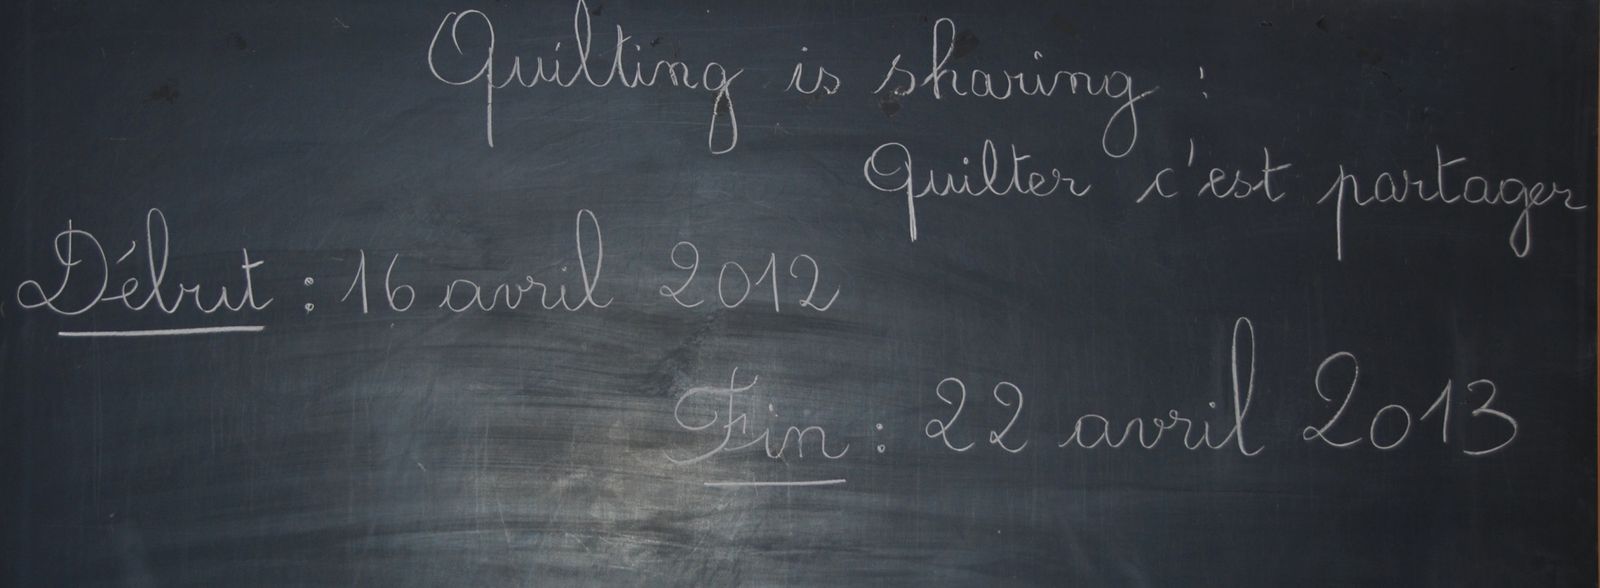 Quilting is sharing :
Quilter c'est partager
Début : 16 avril 2012
Fin : 22 avril 2013